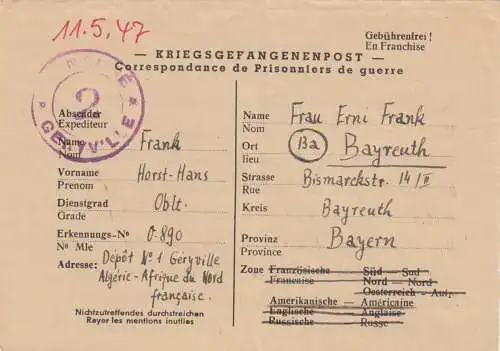 11.5.47
Gebührenfrei!
En Franchise
— KRIEGSGEFANGENENPOST —
Correspondance de Prisonniers de guerre
2
GERYVILLE
Absender
Expediteur
Name Frank
Nom
Vorname Horst-Hans
Prenom
Dienstgrad Oblt.
Grade
Erkennungs-No 0-890
No Mle
Adresse: Depôt No 1 Géryville
Algérie-Afrique du Nord
française.
Nichtzutreffendes durchstreichen
Rayer les mentions inutiles
Name Frau Erni Frank
Nom
Ort (Ba) Bayreuth
lieu
Strasse Bismarckstr. 14/II
Rue
Kreis Bayreuth
Provinz Bayern
Province
Zone Französische Süd — Sud
Francaise Nord — Nord
Oesterreich — Autr.
Amerikanische — Américaine
Englische Anglaise
Russische Russe